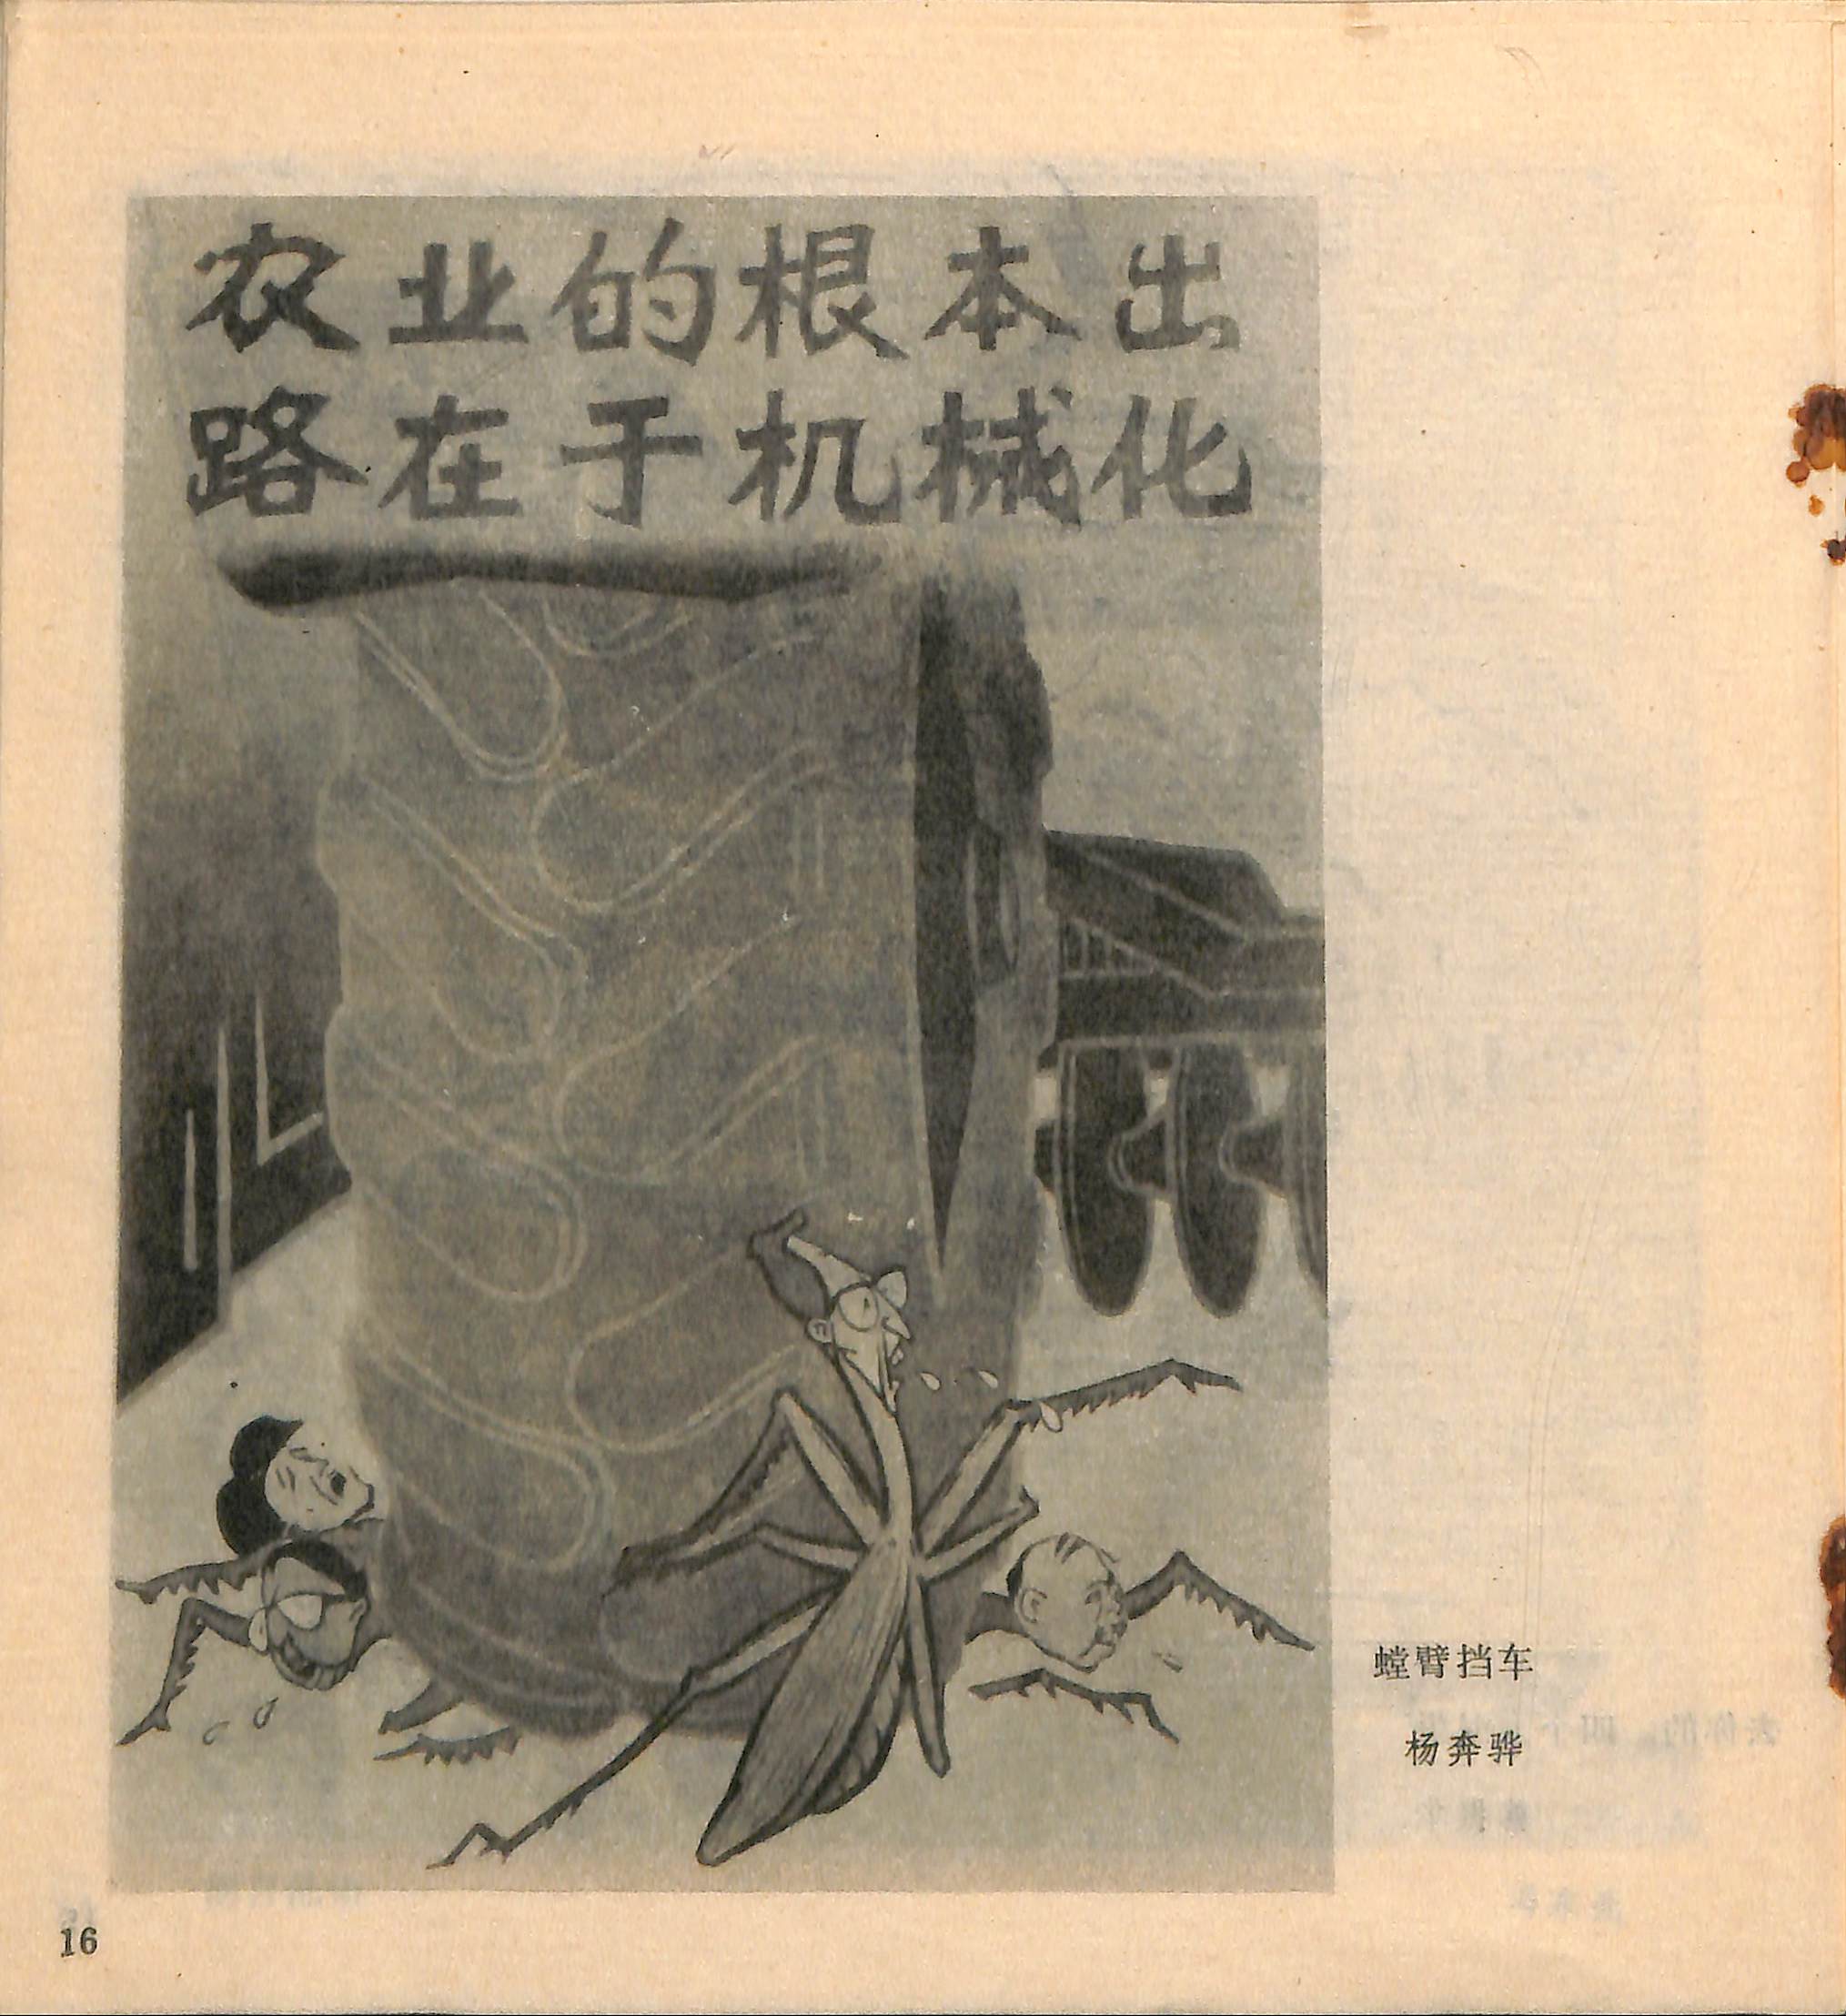 农业的根本出
路在于机械化
螳臂挡车
杨奔骅
16